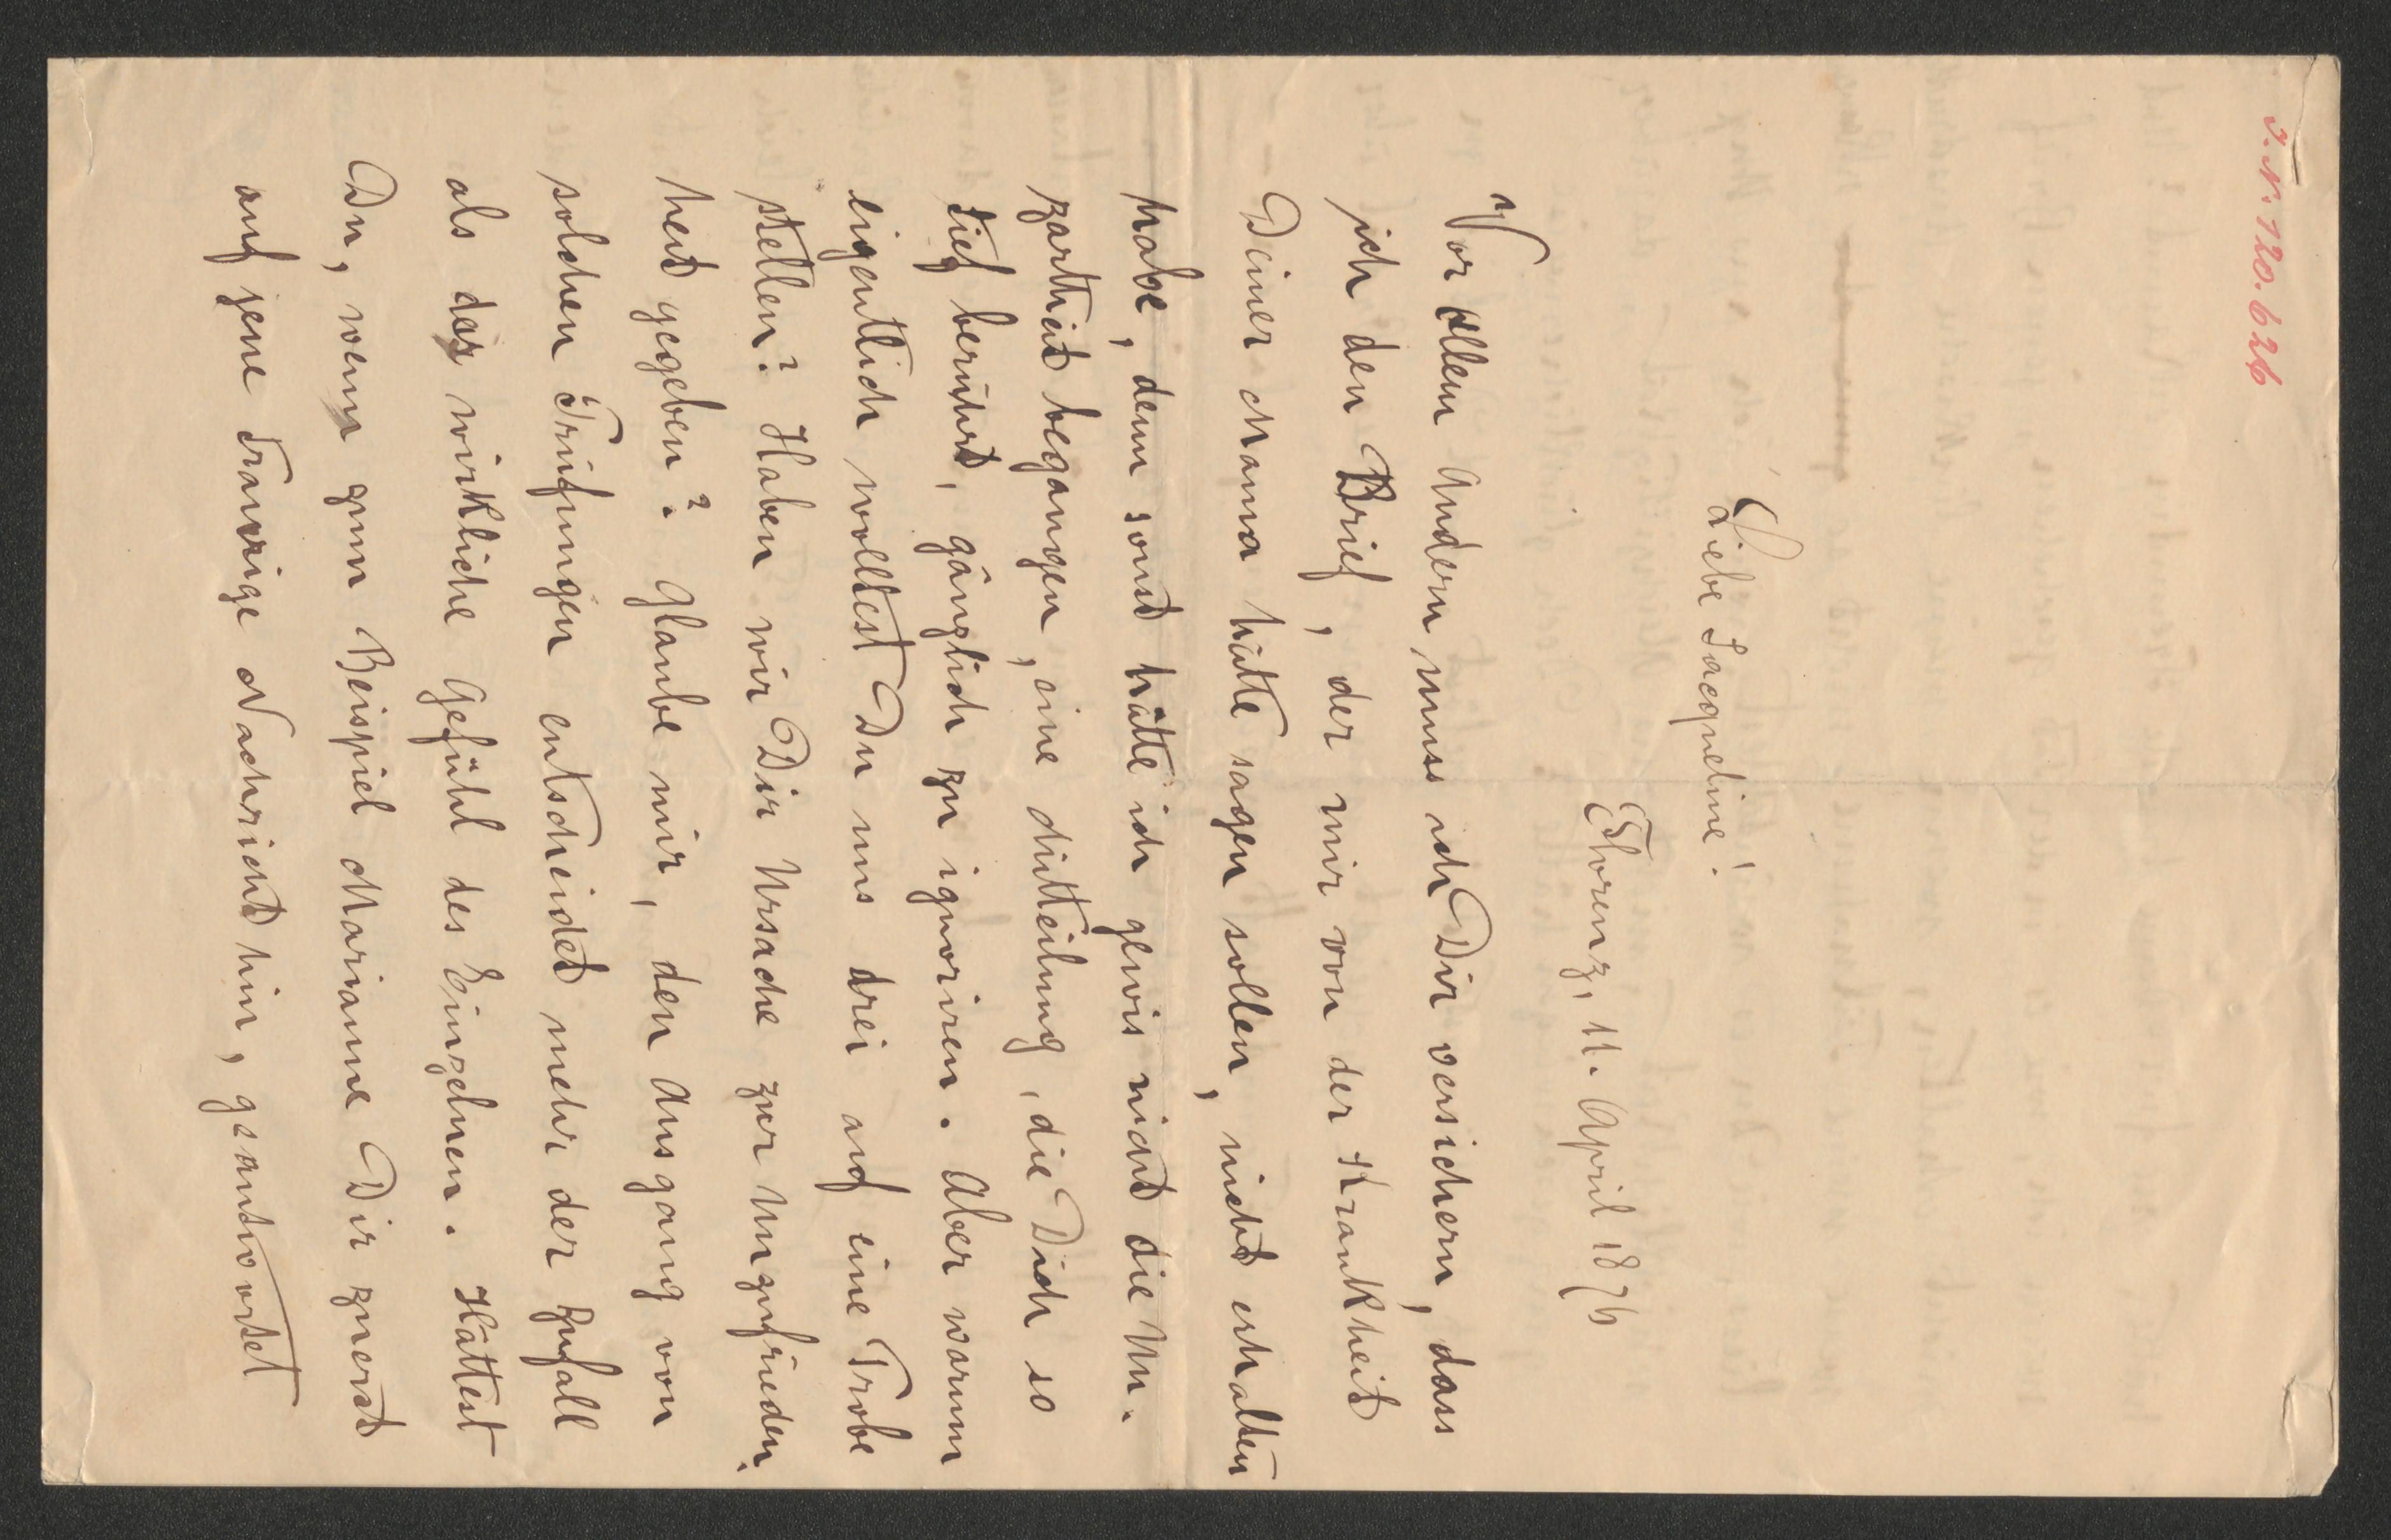 I.N. 120.626
Liebe Jacqueline!
Florenz, 11. April 1876
Vor Allem Andern muss ich Dir versichern, dass
ich den Brief, der mir von der Krankheit
Deiner Mama hätte sagen sollen, nicht erhalten
habe, denn sonst hätte ich gewis nicht die Un-
zartheit begangen, eine Mitteilung, die Dich so
tief berührt, gänzlich zu ignoriren. Aber warum
eigentlich wolltest Du uns drei auf eine Probe
stellen? Haben wir Dir Ursache zur Unzufrieden-
heit gegeben? Glaube mir, den Ausgang von
solchen Prüfungen entscheidet mehr der Zufall
als das wirkliche Gefühl des Einzelnen. Hättest
Du, wenn zum Beispiel Marianne Dir zuerst
auf jene traurige Nachricht hin, geantwortet